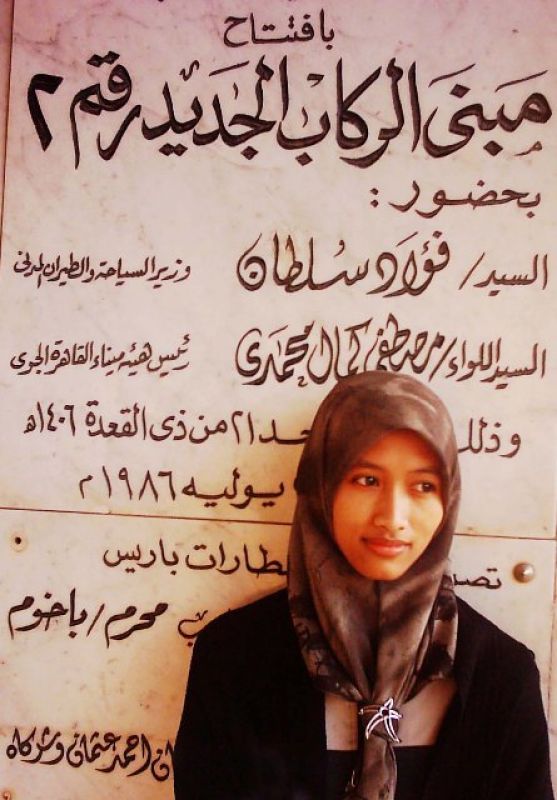 بافتتاح
مبنى الركاب الجديد رقم ٢
بحضور :
السيد/ فؤاد سلطان وزير السياحة والطيران المدنى
السيد اللواء/ مصطفى كمال محمدى رئيس هيئة ميناء القاهرة الجوى
٢١ من ذى القعدة ١٤٠٦ه
يوليه ١٩٨٦م
باريس
محرم / باخوم
احمد عثمان وشركاه